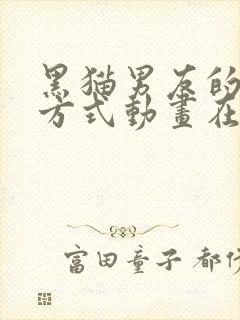 黑猫男友的
方式動畫在
富田童子 都